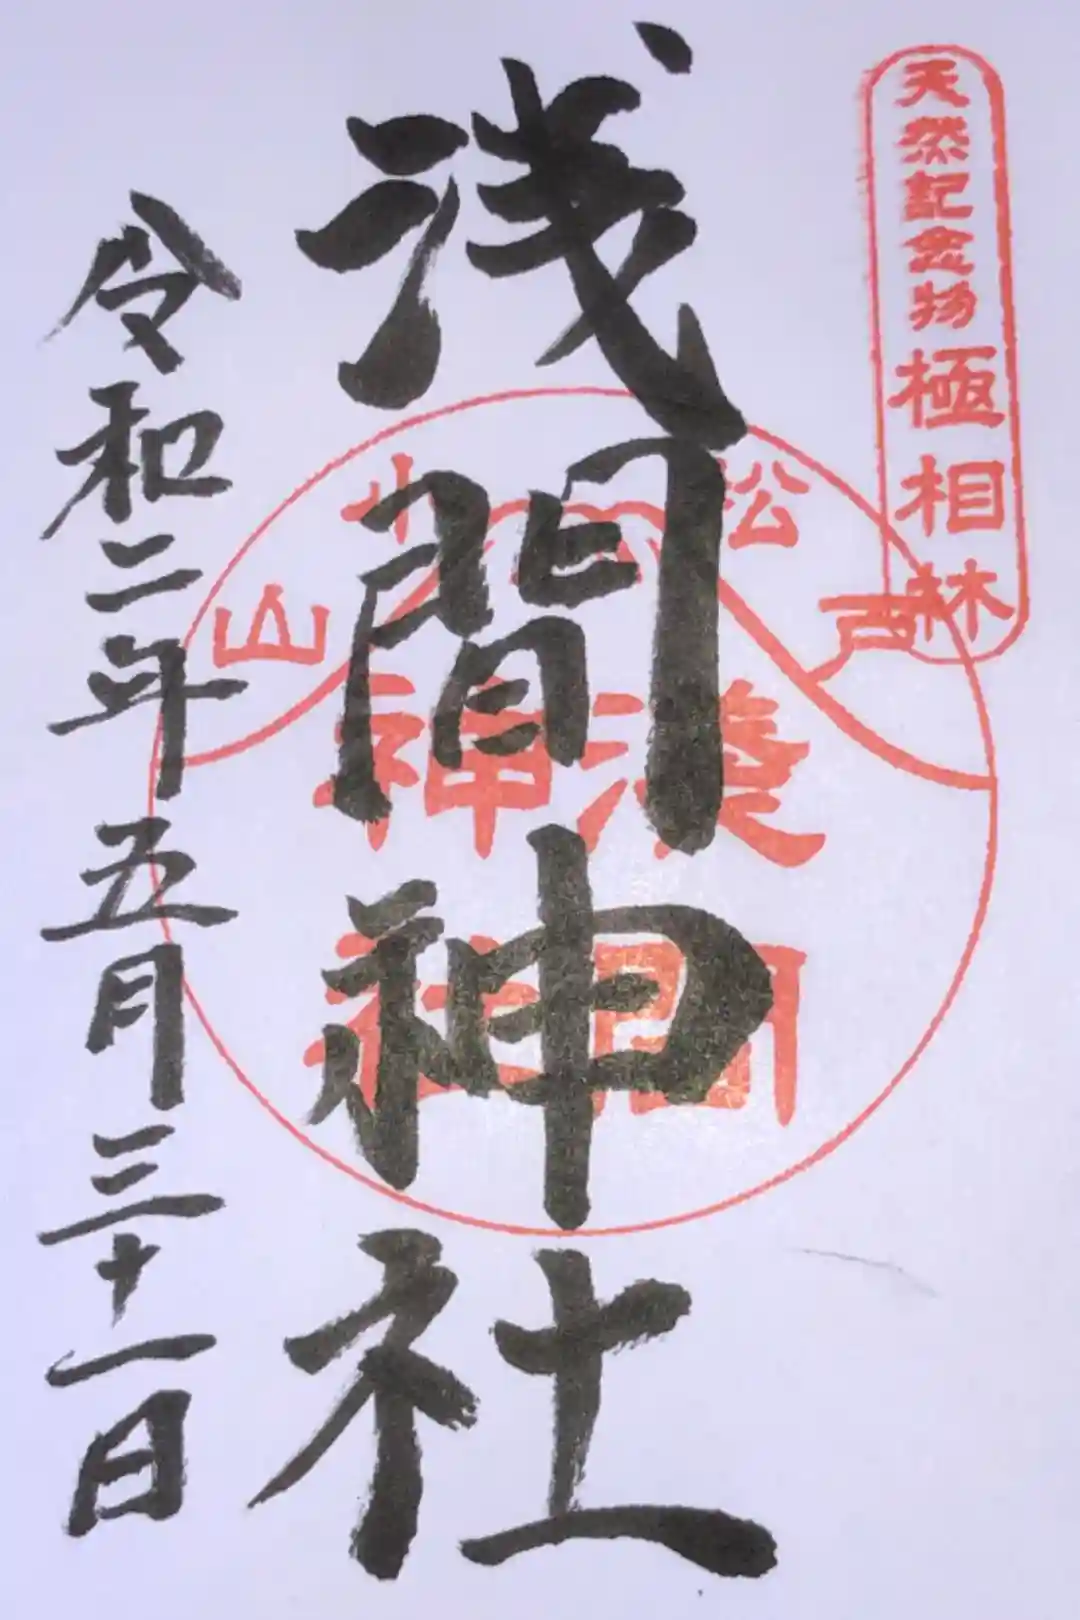 天然記念物極相林
浅間神社
松戸
小山
淺間
神社
令和二年五月三十一日